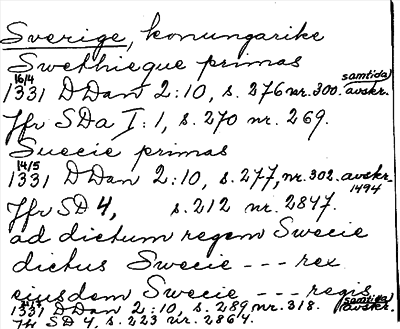 Sverige, konungarike
Swethieque primas
16/4 samtida
1331 DDan 2:10, s. 276 nr. 300. avskr.
Jfr SDa I:1, s. 270 nr. 269.
Suecie primas
14/5
1331 DDan 2:10, s. 277, nr. 302. avskr.
1494
Jfr SD 4, s. 212 nr. 2847.
ad dictum regem Swecie
dictus Swecie --- rex
eiusdem Swecie --- regis
1331 DDan 2:10, s. 289 nr. 318. (samtida) avskr.
Jfr SD 4, s. 223 nr. 2864.